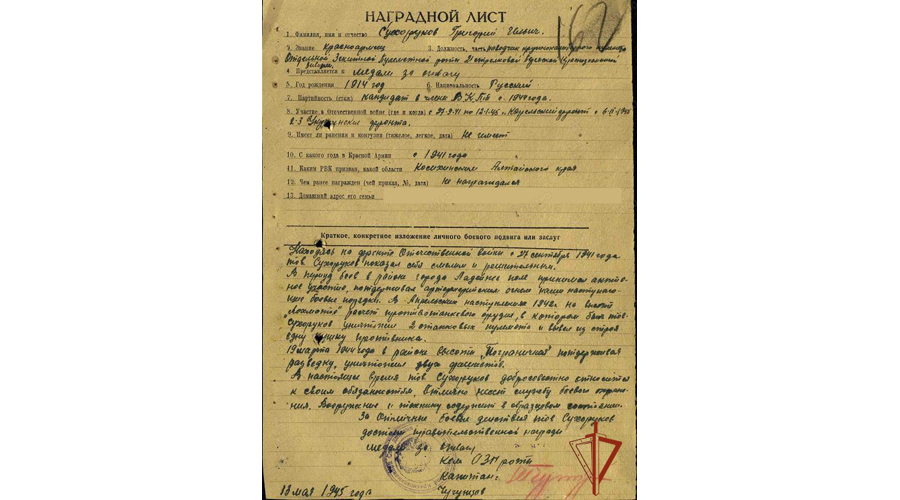 НАГРАДНОЙ ЛИСТ
162
1. Фамилия, имя и отчество Сухоруков Григорий
2. Звание Красноармеец 3. Должность, часть
Отдельной Зенитной Пулеметной роты
4. Представляется к медали за отвагу
5. Год рождения 1914 год 6. Национальность Русский
7. Партийность (стаж) кандидат в члены ВКПб с 194 года.
8. Участие в Отечественной войне (где и когда) с 27-9-41 по Карельский фронт с
2-3 Украинские фронта.
9. Имеет ли ранения и контузии (тяжелое, легкое, дата) Не имеет
10. С какого года в Красной Армии с 1941 года
11. Каким РВК призван, какой области Косихинским Алтайского края
12. Чем ранее награжден (чей приказ, №, дата) Не награждался
13. Домашний адрес его семьи
Краткое, конкретное изложение личного боевого подвига или заслуг
Находясь на фронте Отечественной войны с 27 сентября 1941 года
тов. Сухоруков показал себя смелым и решительным.
В период боев в районе города Ладейное поле принимал актив-
ное участие, поддерживая артиллерийским огнем наши наступаю-
щие боевые порядки. В Апрельском наступлении 1942г. на высоте
"Лохматая" расчет противотанкового орудия, в котором был тов.
Сухоруков уничтожил 2 станковых пулемета и вывел из строя
одну противника.
19 марта 1944 года в районе высоты "Пограничная" поддерживая
разведку, уничтожил двух
В настоящее время тов Сухоруков добросовестно относится
к своим обязанностям. Отлично несет службу боевой охране-
ния. Вооружение и технику содержит в образцовом состоянии.
За Отличные боевые действия тов Сухоруков
достоин правительственной награды
медаль за отвагу
Ком ОЗП роты
Капитан:
Чугунцов
18 мая 1945 года